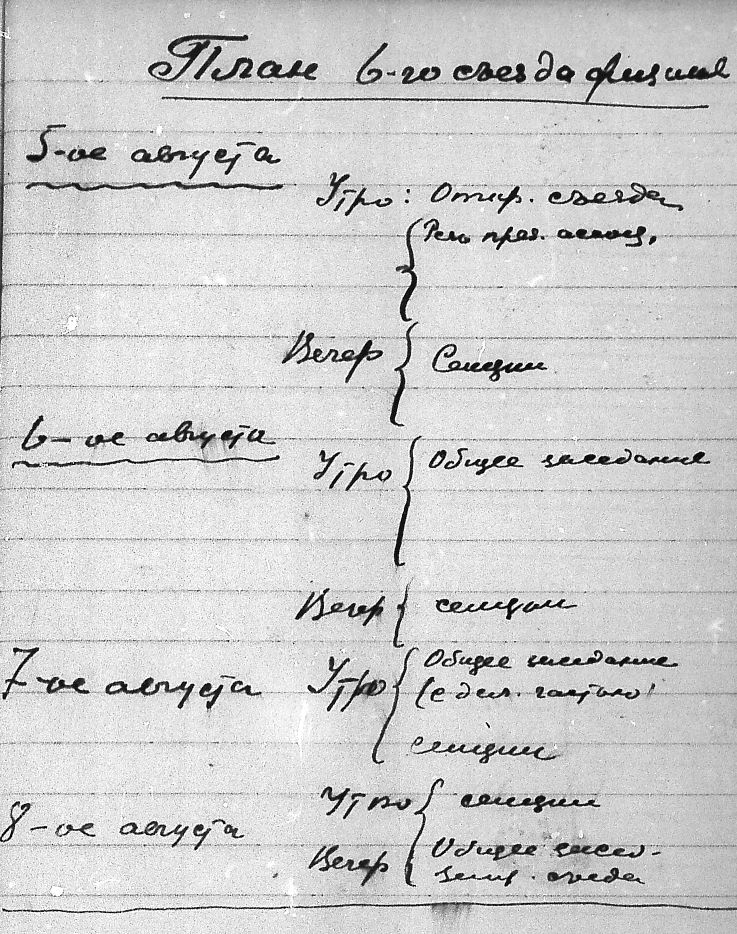 План 6-го съезда физиков
5-ое августа
Утро: Откр. съезда
Речь през. ассоц.
Вечер Секции
6-ое августа
Утро Общее заседание
Вечер секции
7-ое августа
Утро Общее заседание
(с дел. частью)
секции
8-ое августа
Утро секции
Вечер Общее засед.
съезда